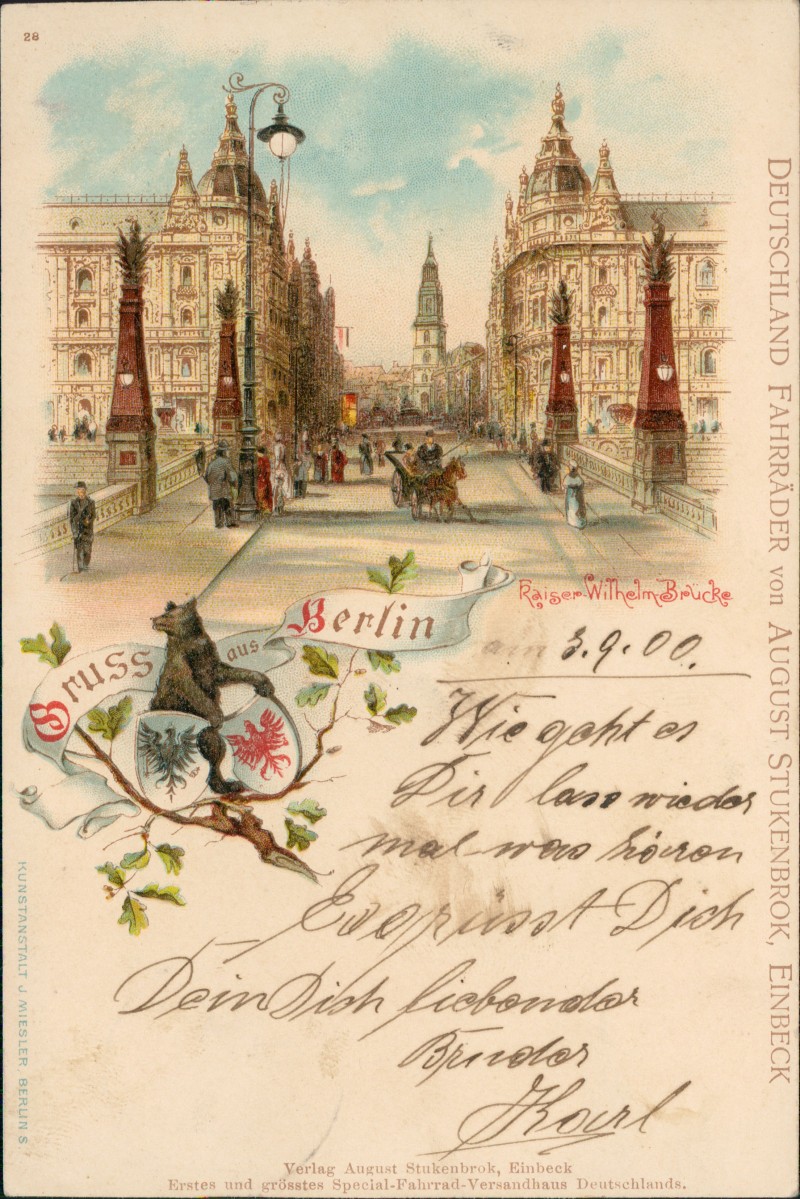 28
DEUTSCHLAND FAHRRÄDER von AUGUST STUKENBROK, EINBECK
Kaiser-Wilhelm-Brücke
Gruss aus Berlin
am 3.9.00.
Wie geht es
Dir lass wieder
mal was hören
Es grüsst Dich
Dein Dich liebender
Bruder
Karl
KUNSTANSTALT J. MIESLER, BERLIN S.
Verlag August Stukenbrok, Einbeck
Erstes und grösstes Special-Fahrrad-Versandhaus Deutschlands.